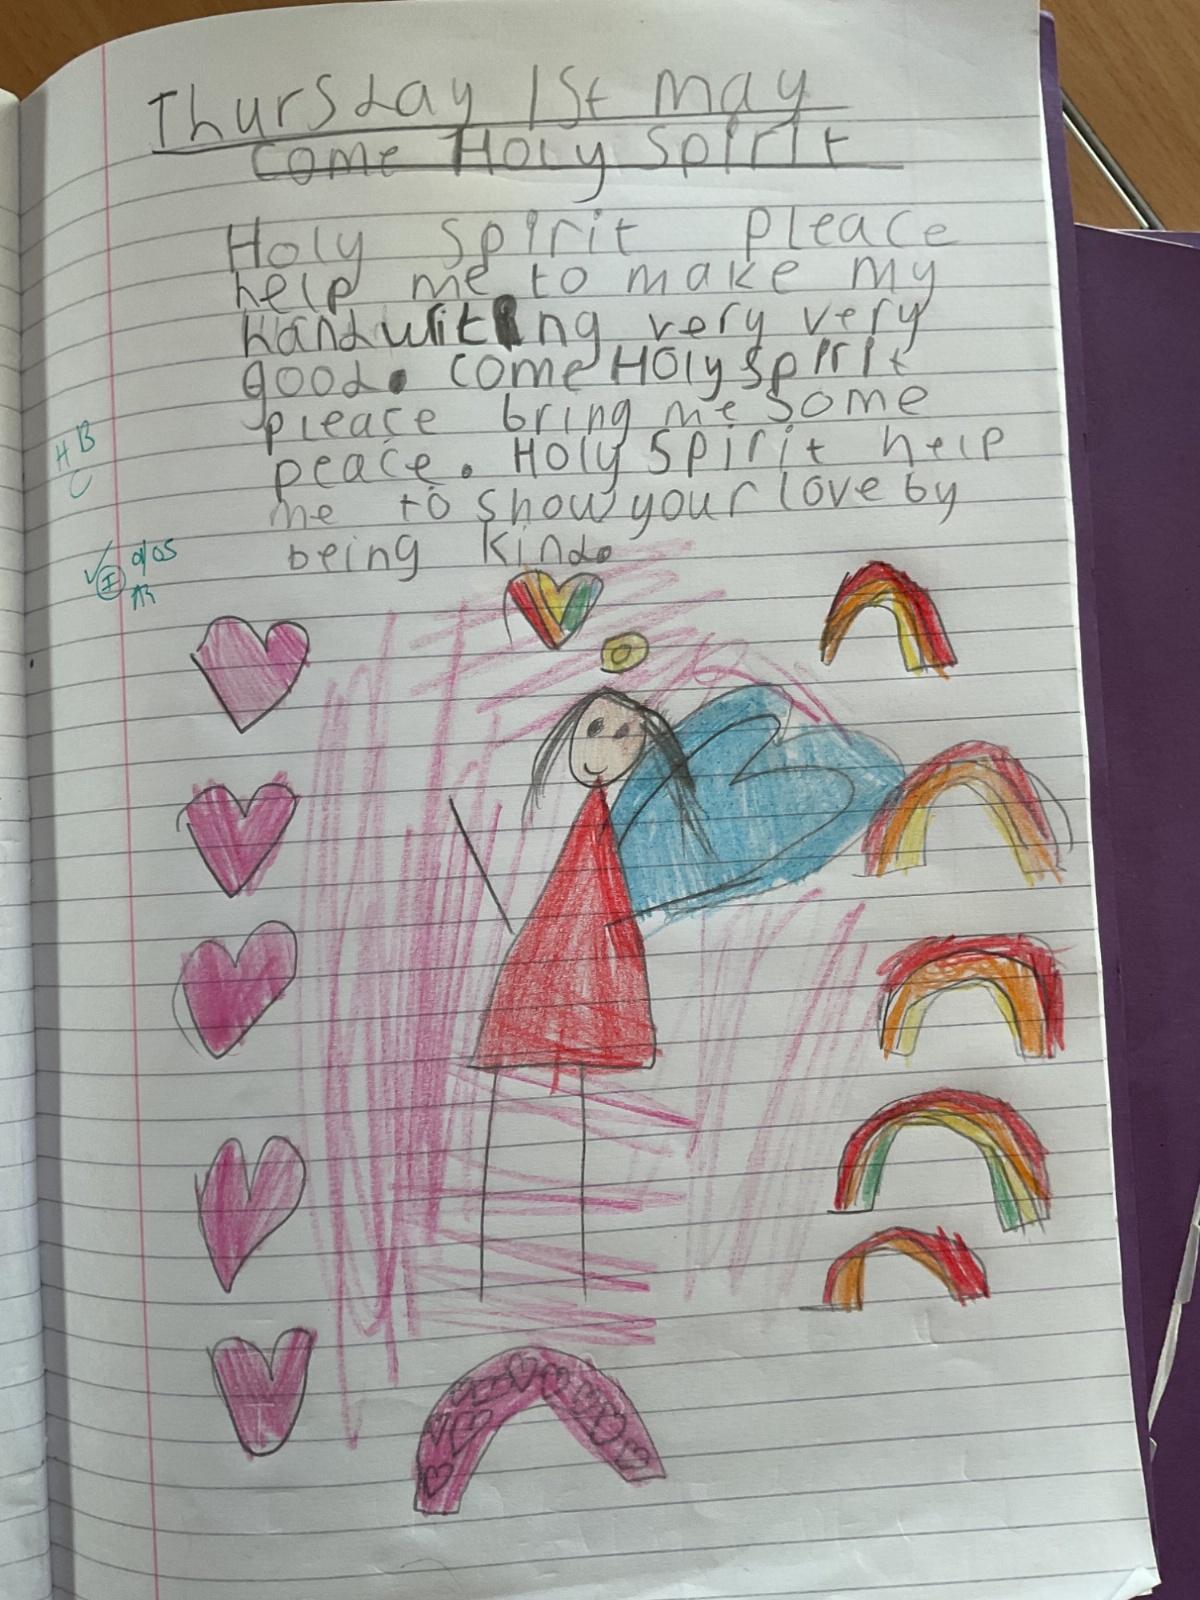 Thursday 1st may
Come Holy Spirit
Holy Spirit pleace
help me to make my
handwriting very very
good. Come Holy Spirit
pleace bring me some
peace. Holy Spirit help
me to show your love by
being kind.
HB
C
✓ I 01/05